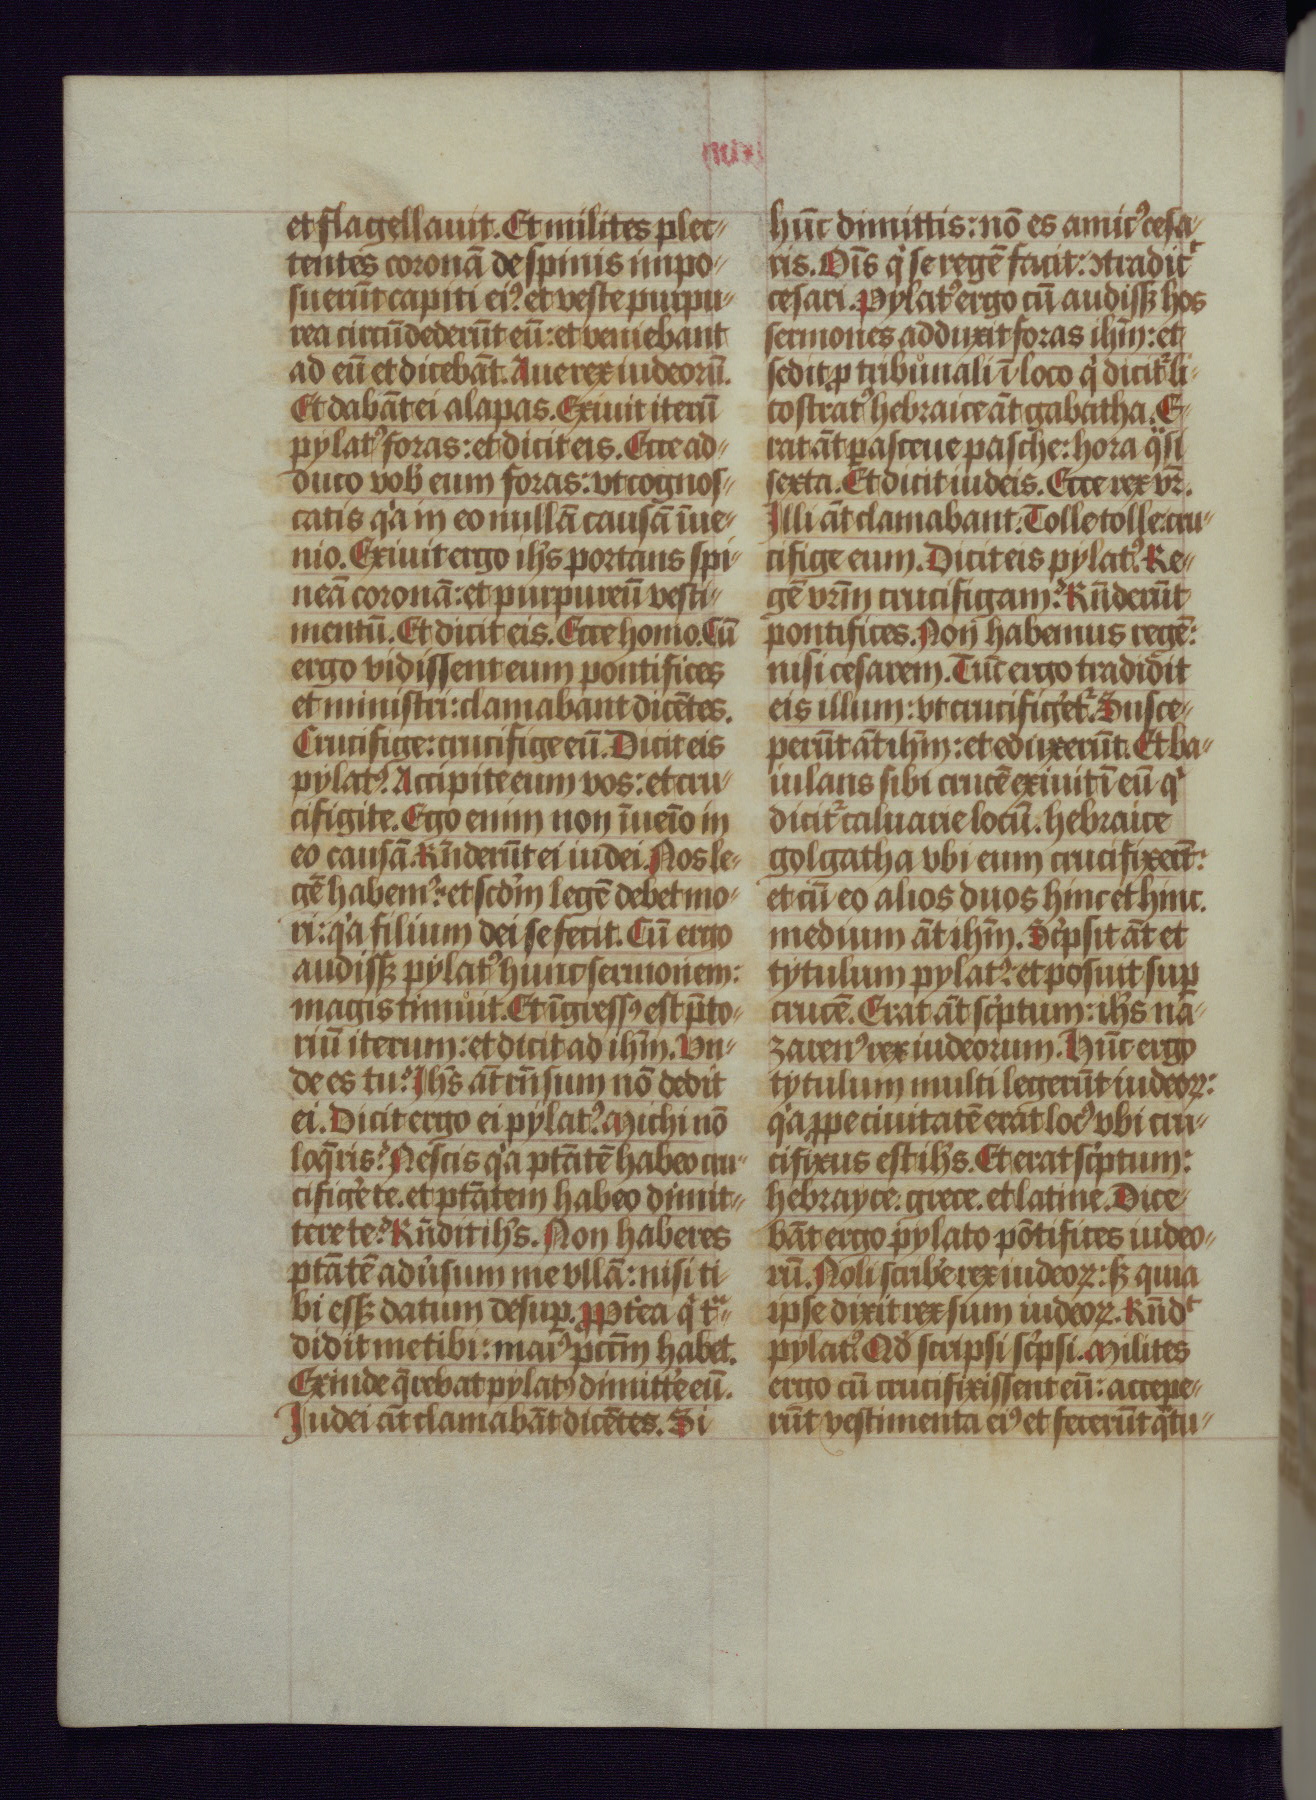 et flagellauit. Et milites plec-
tentes coronā de spinis impo-
suerūt capiti eiꝰ et veste purpu-
rea circūdederūt eū: et veniebant
ad eū et dicebāt. Aue rex iudeorū.
Et dabāt ei alapas. Exiuit iterū
pylatꝰ foras: et dicit eis. Ecce ad-
duco vob̓ eum foras: vt cognos-
catis qͥa in eo nullā causā īue-
nio. Exiuit ergo ih̄s portans spi-
neā coronā: et purpureū vesti-
mentū. Et dicit eis. Ecce homo. Cū
ergo vidissent eum pontifices
et ministri: clamabant dicētes.
Crucifige: crucifige eū. Dicit eis
pylatꝰ. Accipite eum vos: et cru-
cifigite. Ego enim non īueīo in
eo causā. Rn̄derūt ei iudei. Nos le-
gē habemꝰ: et scd̓m legē debet mo-
ri: qͥa filium dei se fecit. Cū ergo
audissꝫ pylatꝰ hunc sermonem:
magis timuit. Et īgressꝰ est p̄to-
riū iterum: et dicit ad ih̄m. Vn-
de es tu? Ih̄s āt rn̄sum nō dedit
ei. Dicit ergo ei pylatꝰ. Michi nō
loq̄ris? Nescis qͥa ptātē habeo cru-
cifig̓e te. et ptātem habeo dimit-
tere te? Rn̄dit ih̄s. Non haberes
ptātē adūsum me vllā: nisi ti-
bi essꝫ datum desuꝑ. Ꝓpt̓ea qͥ tᵃ-
didit me tibi: maiꝰ pctm̄ habet.
Exinde q̄rebat pylatꝰ dimitt̓e eū.
Iudei āt clamabāt dicētes. Si
hūc dimittis: nō es amicꝰ cesa-
ris. Om̄s qͥ se regē facit: ꝯtradicᵗ
cesari. Pylatꝰ ergo cū audissꝫ hos
sermones adduxit foras ih̄m: et
sedit ꝓ tribunali ī loco qͥ dicitᷣ li-
tostratꝰ hebraice āt gabatha. E-
rat āt ꝑasceue pasche: hora qᵃsi
sexta. Et dicit iudeis. Ecce rex vr̄.
Illi āt clamabant. Tolle tolle: cru-
cifige eum. Dicit eis pylatꝰ. Re-
gē vrm̄ crucifigam? Rn̄derūt
pontifices. Non habemus regē:
nisi cesarem. Tūc ergo tradidit
eis illum: vt crucifig̓etᷣ. Susce-
perūt āt ih̄m: et eduxerūt. Et ba-
iulans sibi crucē exiuit ī eū qͥ
dicitᷣ caluarie locū. hebraice
golgatha vbi eum crucifixerūt:
et cū eo alios duos hinc et hinc.
medium āt ih̄m. Scͥpsit āt et
tytulum pylatꝰ: et posuit suꝑ
crucē. Erat āt scͥptum: ih̄s na-
zarenꝰ rex iudeorum. Hūc ergo
tytulum multi legerūt iudeoꝝ:
qͥa ꝓpe ciuitatē erat locꝰ vbi cru-
cifixus est ih̄s. Et erat scͥptum:
hebrayce. grece. et latine. Dice-
bāt ergo pylato pōtifices iudeo-
rū. Noli scrib̓e rex iudeoꝝ: sꝫ quia
ipse dixit rex sum iudeoꝝ. Rn̄dᵗ
pylatꝰ. Qd̓ scripsi scͥpsi. Milites
ergo cū crucifixissent eū: accepe-
rūt vestimenta eiꝰ et fecerūt qᵃtu-